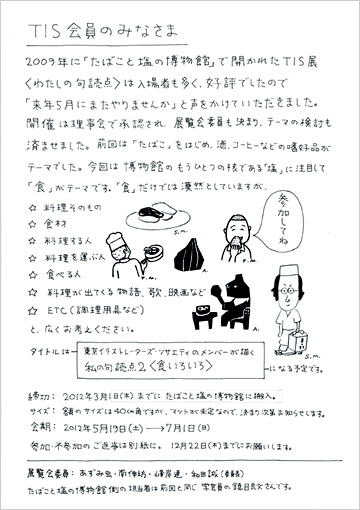 TIS会員のみなさま
2009年に「たばこと塩の博物館」で開かれたTIS展
〈わたしの句読点〉は入場者も多く、好評でしたので
「来年5月にまたやりませんか」と声をかけていただきました。
開催は理事会で承認され、展覧会委員も決まり、テーマの検討も
済ませました。前回は「たばこ」をはじめ、酒、コーヒーなどの嗜好品が
テーマでした。今回は博物館のもうひとつの核である「塩」に注目して
「食」がテーマです。「食」だけでは漠然としていますが、
☆ 料理そのもの
☆ 食材
☆ 料理する人
☆ 料理を運ぶ人
☆ 食べる人
☆ 料理が出てくる物語、歌、映画など
☆ ETC(調理用具など)
と、広くお考えください。
参加してね
S.M.
A.
A.
S.M.
タイトルは
東京イラストレーターズ・ソサエティのメンバーが描く
私の句読点2〈食いろいろ〉
になる予定です。
締切: 2012年3月1日(木)までにたばこと塩の博物館に搬入。
サイズ: 額のサイズは40cm角ですが、マットが未定なので、決まり次第お知らせします。
会期: 2012年5月19日(土)→7月1日(日)
参加・不参加のご返事は別紙に。12月22日(木)までにお願いします。
展覧会委員: あずみ虫・南伸坊・峰岸達・和田誠
たばこと塩の博物館側の担当者は前回と同じ学芸員の鎮目良文さんです。